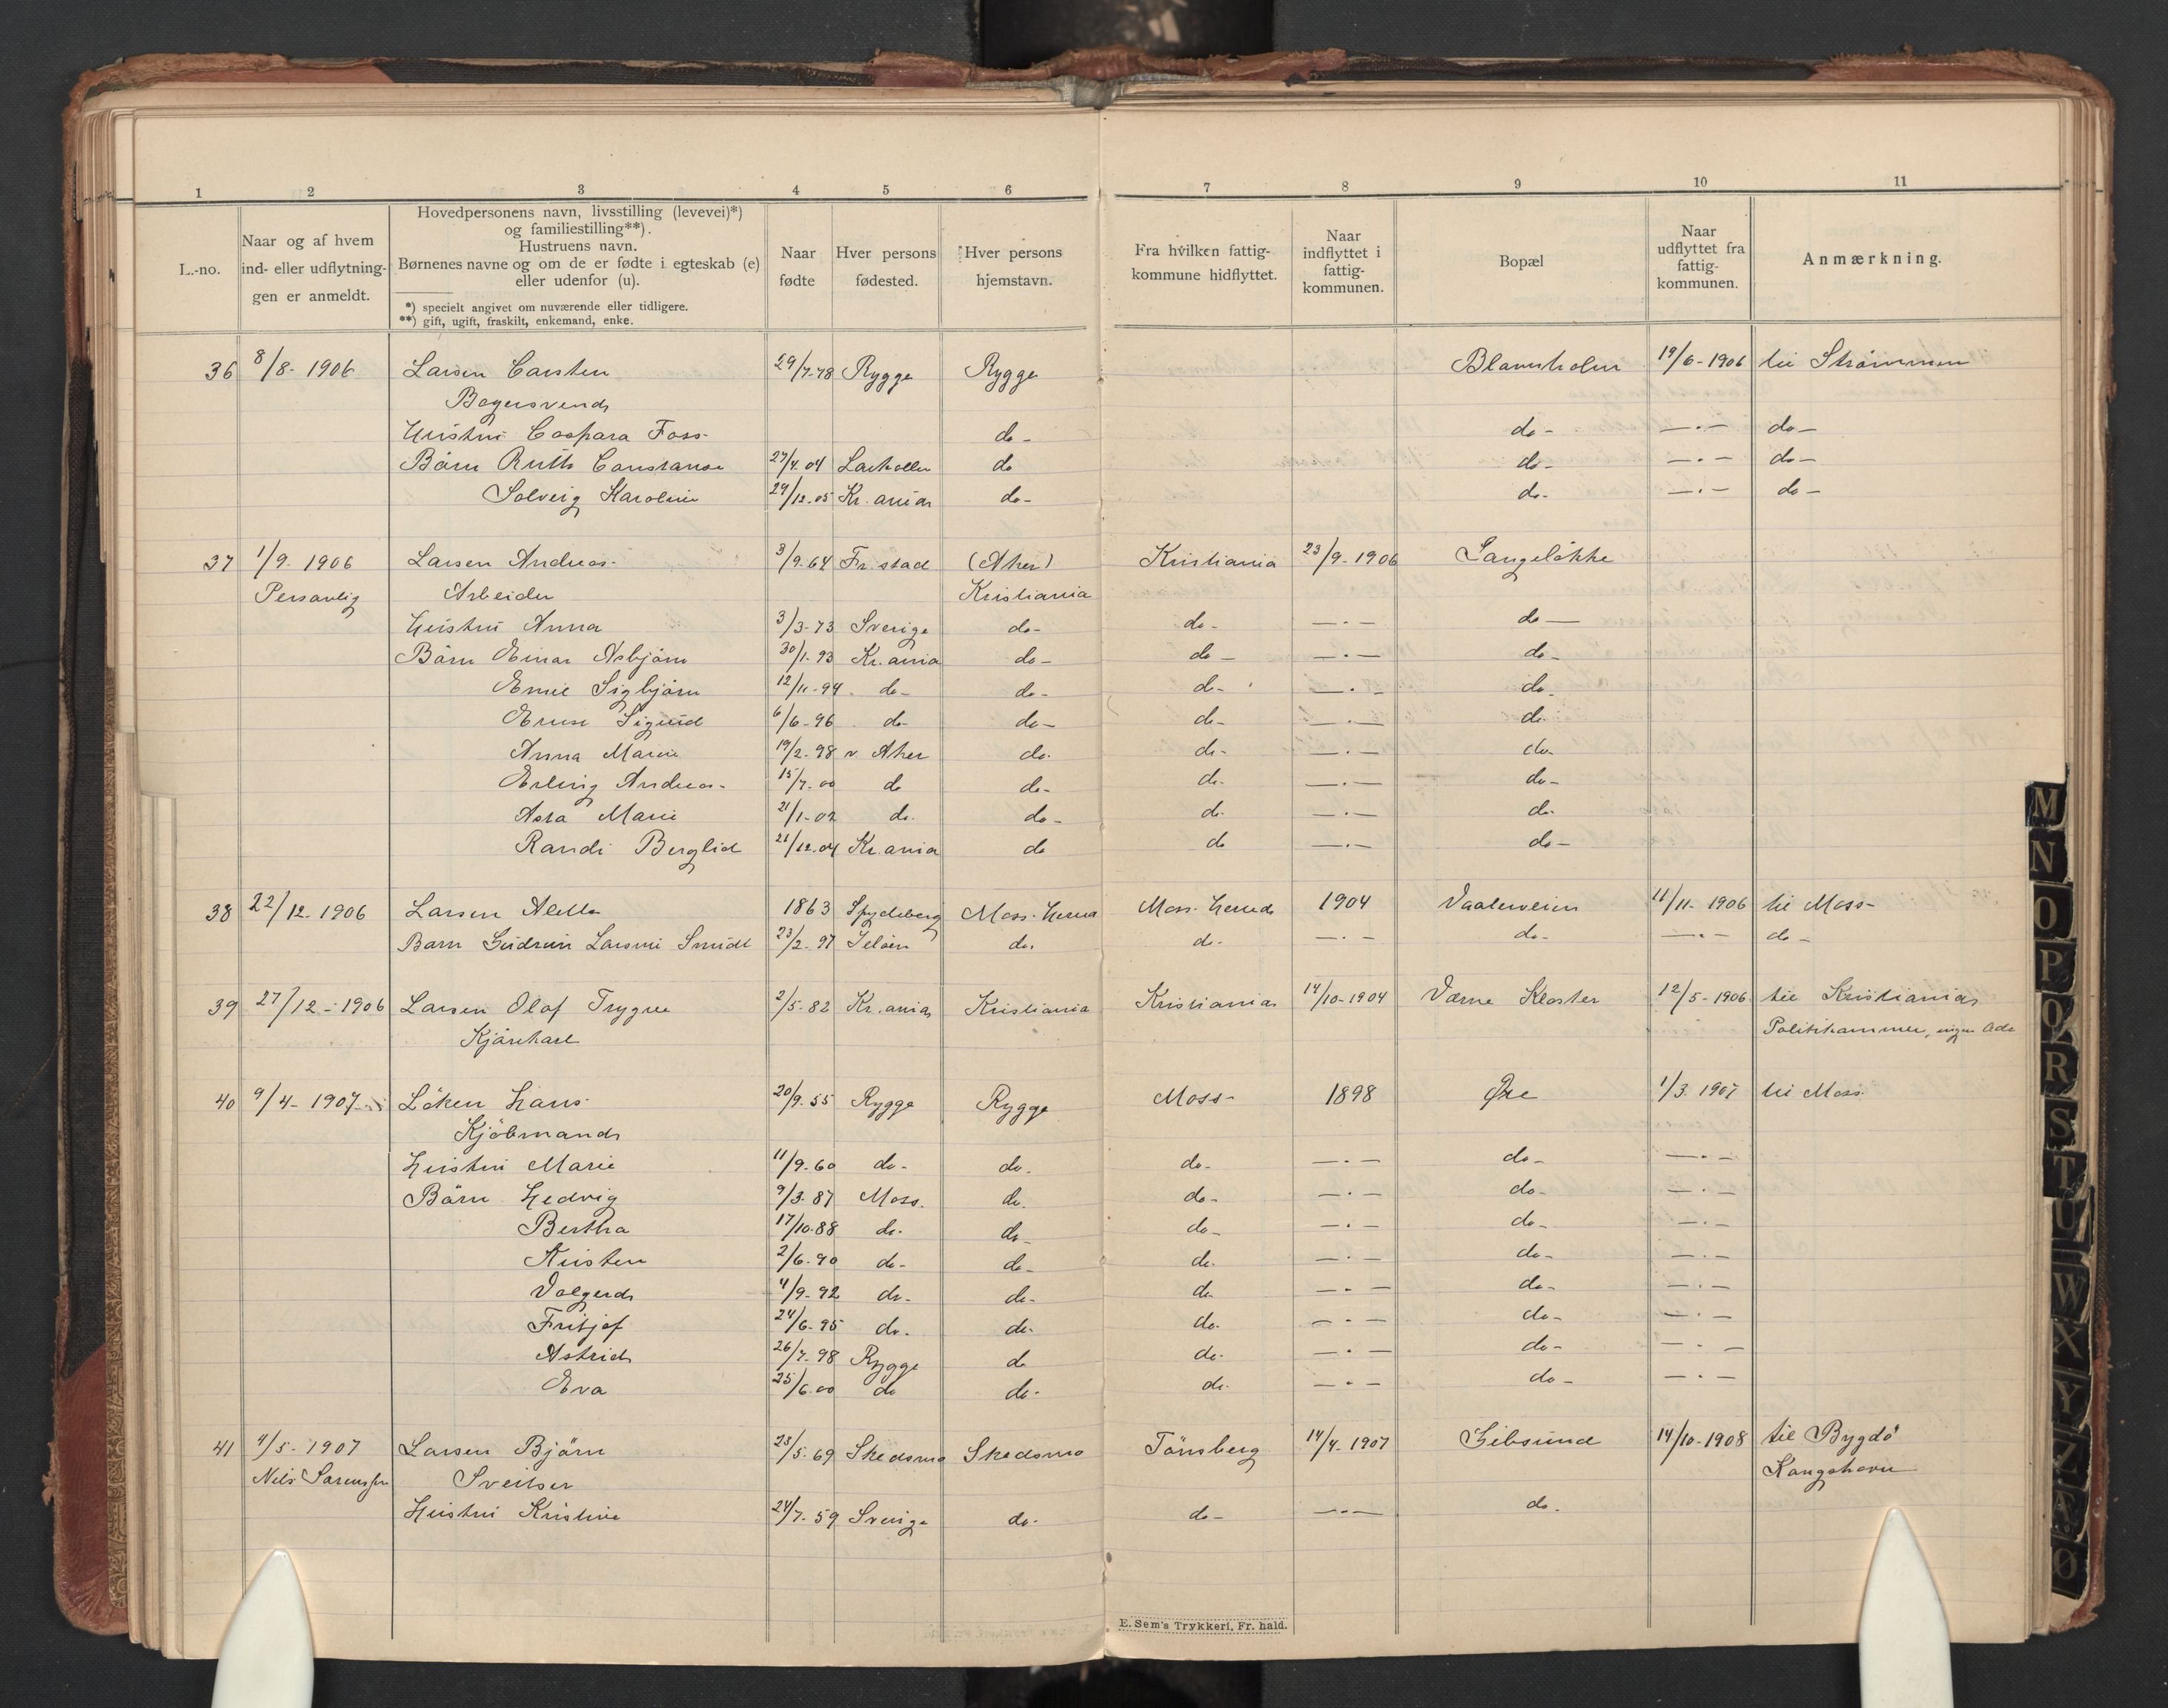 1 2 3 4 5 6 7 8 9 10 11
L.-no.
Naar og af hvem
ind- eller udflytnin-
gen er anmeldt.
Hovedpersonens navn, livsstilling (levevei)*)
og familiestilling**).
Hustruens navn.
Børnenes navne og om de er fødte i egteskab (e)
eller udenfor (u).
*) specielt angivet om nuværende eller tidligere.
**) gift, ugift, fraskilt, enkemand, enke.
Naar
fødte
Hver persons
fødested.
Hver persons
hjemstavn.
Fra hvilken fattig-
kommune hidflyttet.
Naar
indflyttet i
fattig-
kommunen.
Bopæl
Naar
udflyttet fra
fattig-
kommunen.
Anmærkning.
36 8/8- 1906 Larsen Carsten 29/7-78 Rygge Rygge 19/6-1906 til Strömmen
Bagersvend
Hustru Caspara Foss- do- do- —.— do-
Börn Ruth Constanse 27/4.04 do do- —.— do-
Solveig Karoline 29/12.05 Kr.ania do- do- —.— do-
37 1/9- 1906 Larsen Andreas- 3/9-64 Fr.stad (Aker) Kristiania 23/9-1906 Langelökke
Personlig Arbeider Kristiania
Hustru Anna 3/3-73 Sverige do- do- —.— do—
Börn Einar Asbjörn 30/1-93 Kr.ania do- do- —.— do-
Emil Sigbjörn 12/11-94 do- do- do- —.— do-
Sigurd 6/6-96 do- do- do- —.— do-
Anna Marie 19/2-98 v. Aker do- do- —.— do-
Erling Andreas- 15/7-00 do do- do- —.— do-
Asta Marie 21/1-02 do- do- do- —.— do-
Randi Berglid 21/12.04 Kr.ania do do —.— do-
38 22/12-1906 Larsen 1863 Spydeberg Moss Herred Moss Herred 1904 11/11-1906 til Moss-
Barn Gudrun Larsine Smidt 23/2-97 Jelöen do. do- —.— do- —.— do-
39 27/12-1906 Larsen Olaf Trygve 2/5-82 Kr.ania Kristiania Kristiania 14/10-1904 Værne Kloster 12/5-1906 til Kristiania
Kjörekarl Politikammer, ingen Adr
40 9/4-1907 Löken Hans- 20/9-55 Rygge Rygge Moss- 1898 Øre 1/3-1907 til Moss-
Kjöbmand
Hustru Marie 11/9-60 do- do- do- —.— do- —.—
Börn Hedvig 9/3-87 Moss. do- do- —.— do- —.—
Bertha 17/10-88 do- do- do- —.— do- —.—
Kristen 2/6-90 do- do- do- —.— do- —.—
Valgerd 4/9-92 do- do- do- —.— do- —.—
Fritjof 24/6-95 do- do- do- —.— do- —.—
Astrid 26/7-98 Rygge do do- —.— do- —.—
Eva 25/6-00 do do- do- —.— do- —.—
41 4/5-1907 Larsen Björn 23/5-69 Skedsmo Skedsmo Tönsberg 14/4-1907 Gibsund 14/10-1908 til Bygdö
Nils Sveitser Kongshavn
Hustru Kristine 24/7-59 Sverige do- do- —.— do-
E. Sem's Trykkeri, Fr. hald.
M
N
O
P
Q
R
S
T
U
W
X
Y
Z
Æ
Ø